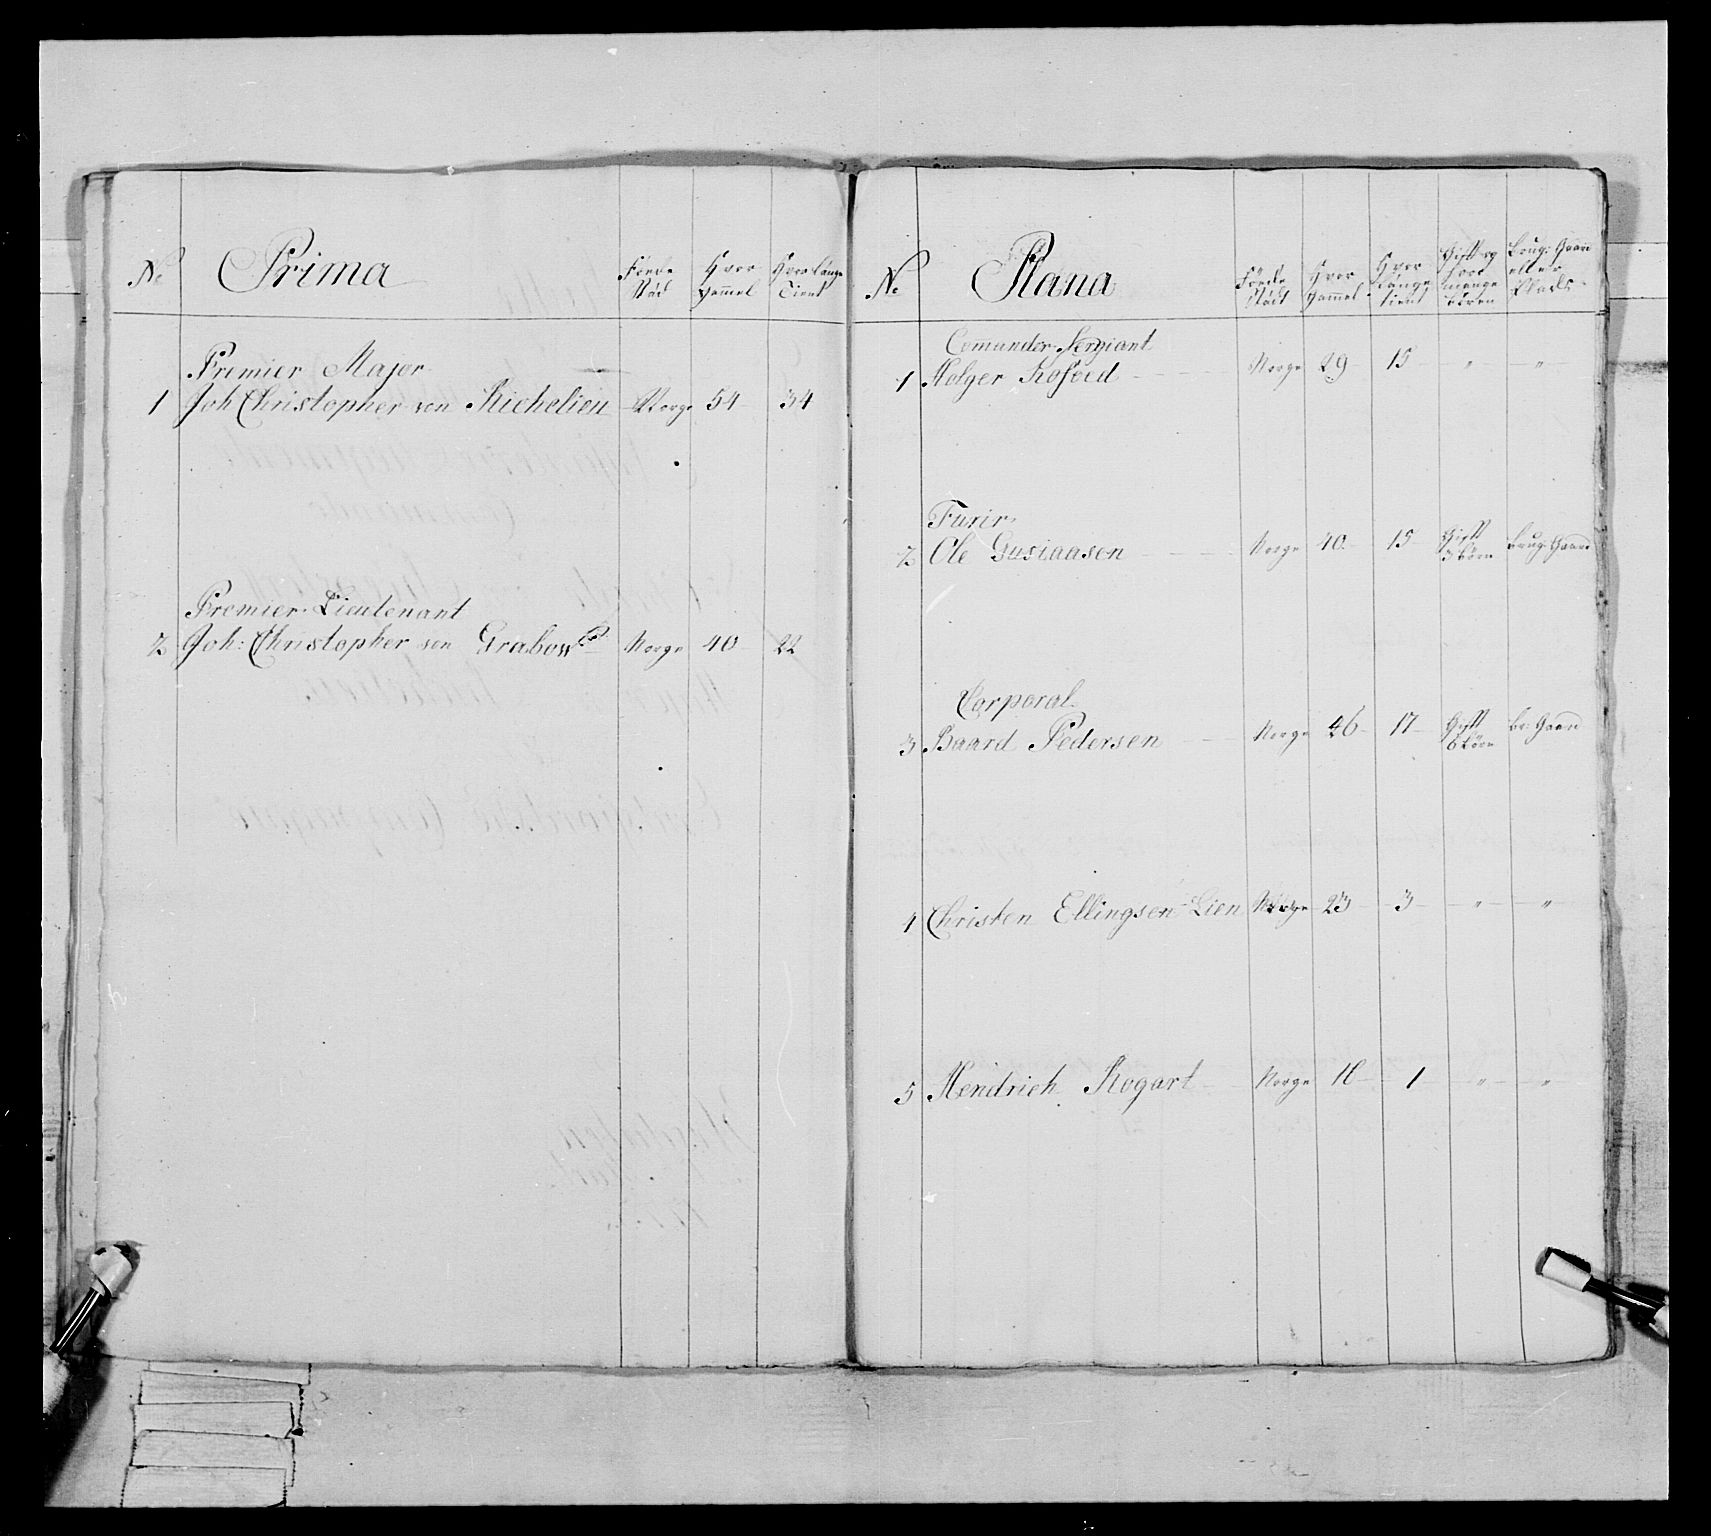 No Prima Föede Stöd Hvor Gammel Hvor länge Tient
Premier Major
1 Joh Christopher von Richelieu Norge 54 34
Premier-Lieutenant
2 Joh: Christopher von Grabow Norge 40 22
No Plana Föede Stöd Hvor Gammel Hvor länge tient Gift og hvor mange börn Brug: Gaard eller Plads
Comander Sergiant
1 Holger Rosöed Norge 29 15 " "
Furir
2 Ole Gusiaasen Norge 40 15 Gift 3 börn brug: Gaard
Corporal
3 Baard Pedersen Norge 46 17 Gift 6 börn br: Gaard
4 Christen Ellingsen Lien Norge 23 3 " "
5 Hendrich Rogart Norge 1 " "